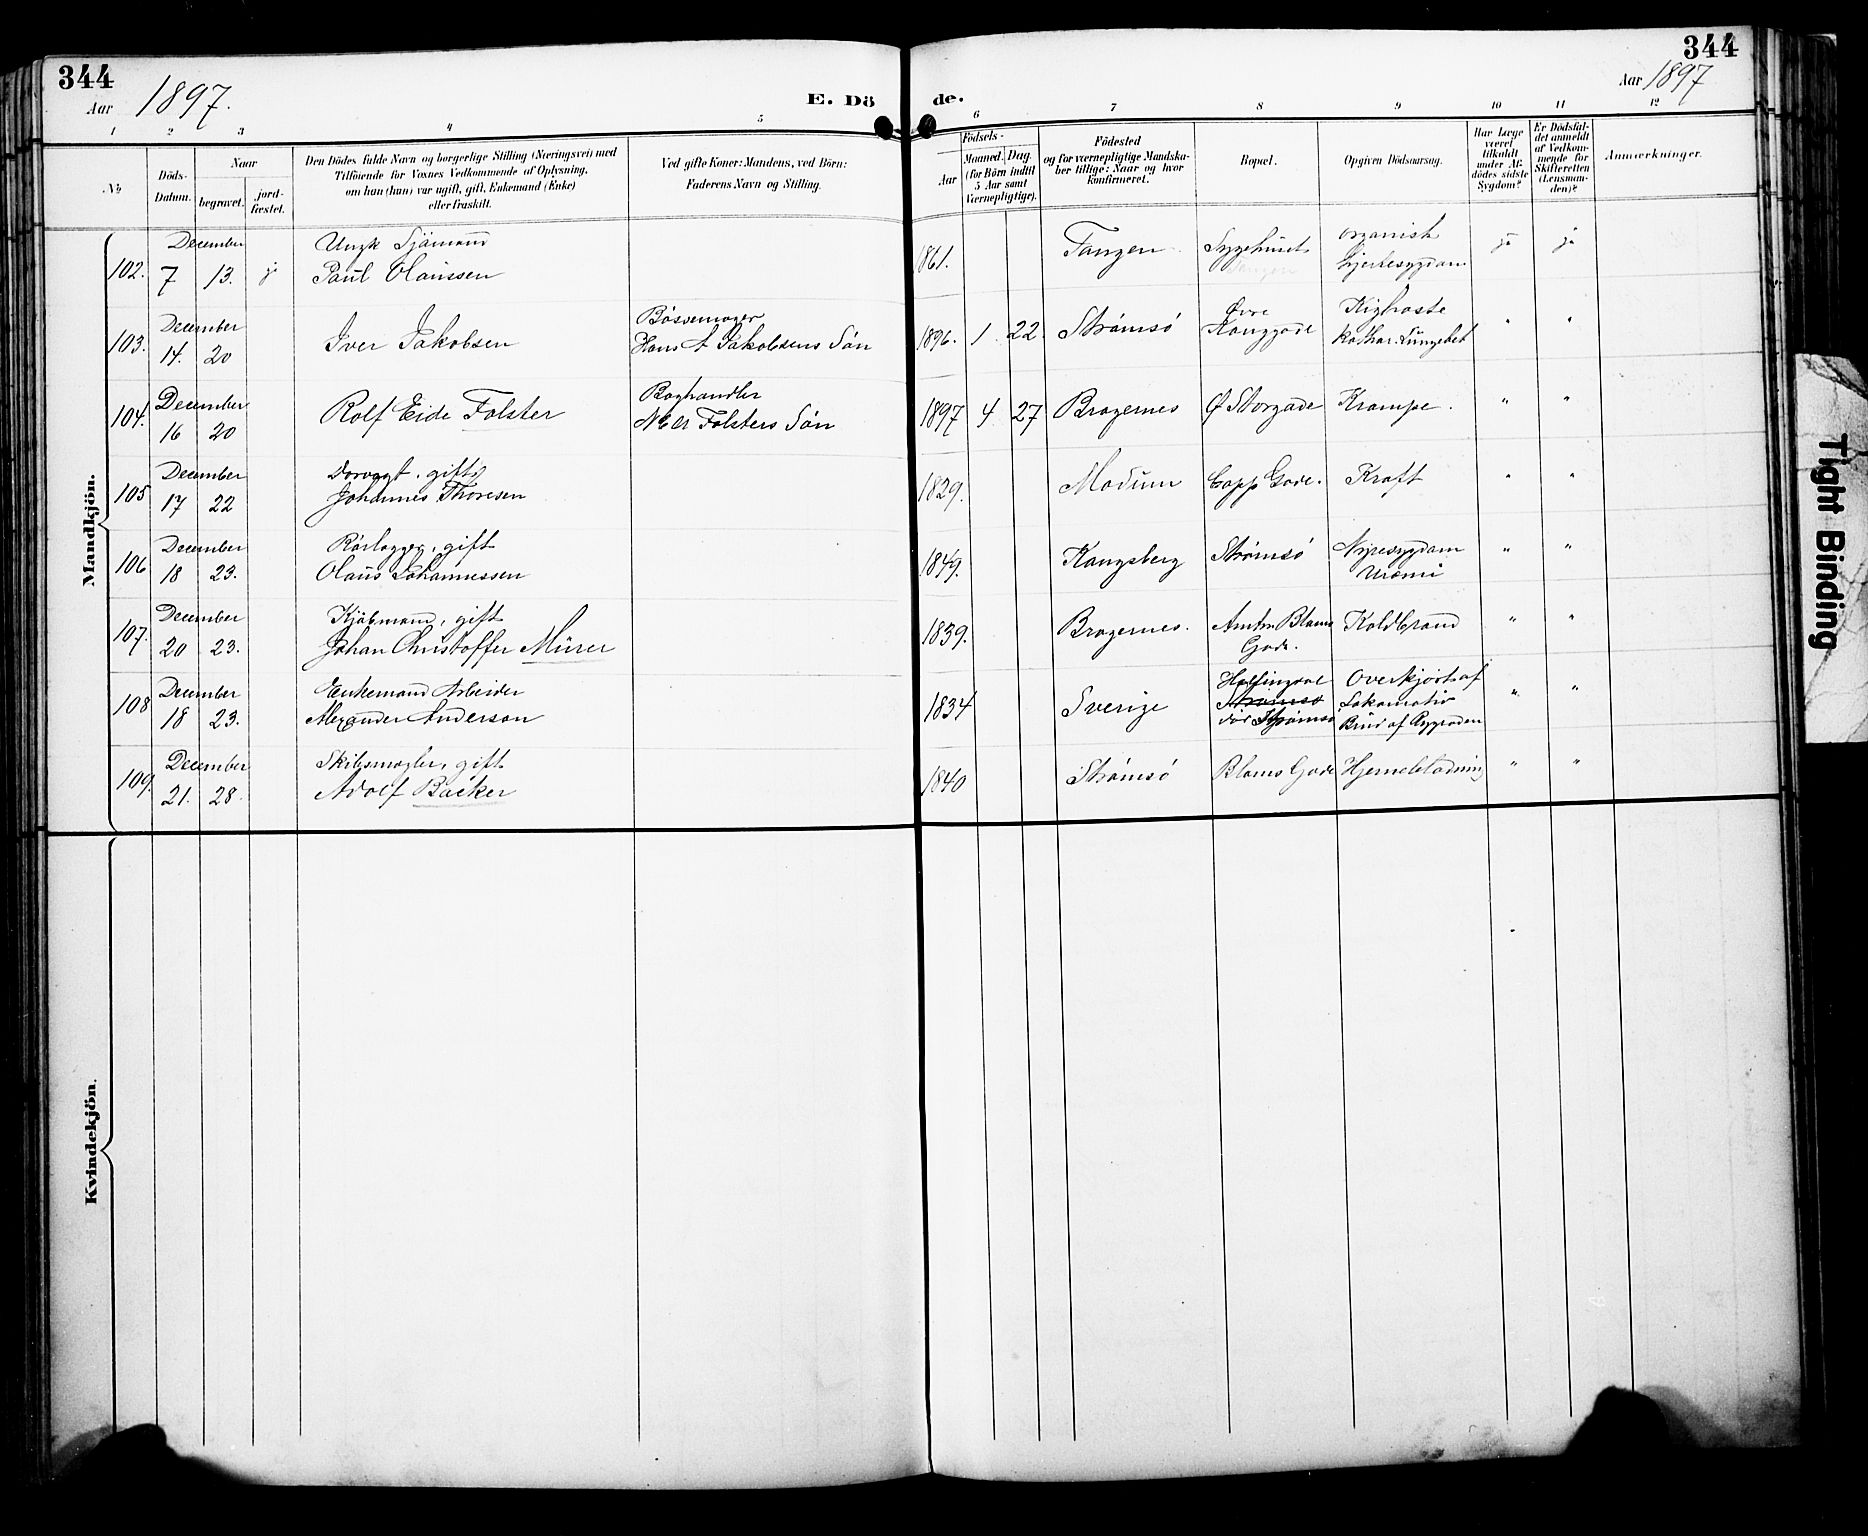 344
344
Aar 1897.
Aar 1897
E. Dö de.
1 2 3 4 5 6 7 8 9 10 11 12
No
Döds-
Datum.
Naar
begravet.
jord-
fæstet.
Den Dödes fulde Navn og borgerlige Stilling (Næringsvei) med
Tilföiende for Voxnes Vedkommende af Oplysning,
om hun (han) var ugift, gift, Enkemand (Enke)
eller fraskilt.
Ved gifte Koner: Mandens, ved Börn:
Faderens Navn og Stilling.
Födsels-
Aar
Maaned.
Dag.
(for Börn indtil
5 Aar samt
Værnepligtige).
Födested
og for værnepligtige Mandska-
ber tillige: Naar og hvor
konfirmeret.
Bopæl.
Opgiven Dödsaarsag.
Har Læge
været
tilkaldt
under Af-
dödes sidste
Sygdom?
Er Dödsfal-
det anmeldt
af Vedkom-
mende for
Skifteretten
(Lensman-
den)?
Anmærkninger.
Mandkjön.
102. December 7 13. ja Ungk Sjömand
Paul Olaussen 1861. Tangen Sygehuset
Tangen organisk
Hjertesygdom ja ja
103. December 14. 20 Iver Jakobsen Bössemager
Hans A Jakobsens Sön 1896. 1 22. Strömsö Øvre
Konggade Kighoste
kathar. Lungebet " "
104. December 16 20 Rolf Eide Folster Boghandler
Folsters Sön 1897 4 27 Bragernes Ø Storgade Krampe. " "
105 December 17 22 gift
Johannes Thoresen 1829. Modum Capp Gade. Kræft " "
106 December 18 23. Rörlægger, gift
Olaus Johannessen 1849. Kongsberg Strömsö Nyresygdom
Urämi " "
107. December 20 23. Kjöbmand, gift
Johan Christoffer Mürer 1839. Bragernes. Amtm Bloms
Gade. Koldbrand " "
108 December 18 23. Enkemand Arbeider
Alexander Anderson 1834 Sverige Hallingdal
Strömsö
död Strömsö Overkjört af
Lokomotiv
Brud af Rygraden " "
109. December 21. 28. Skibsmægler, gift
Adolf Backer 1840 Strömsö Bloms Gade Hjerneblödning " "
Kvindekjön.
Tight Binding